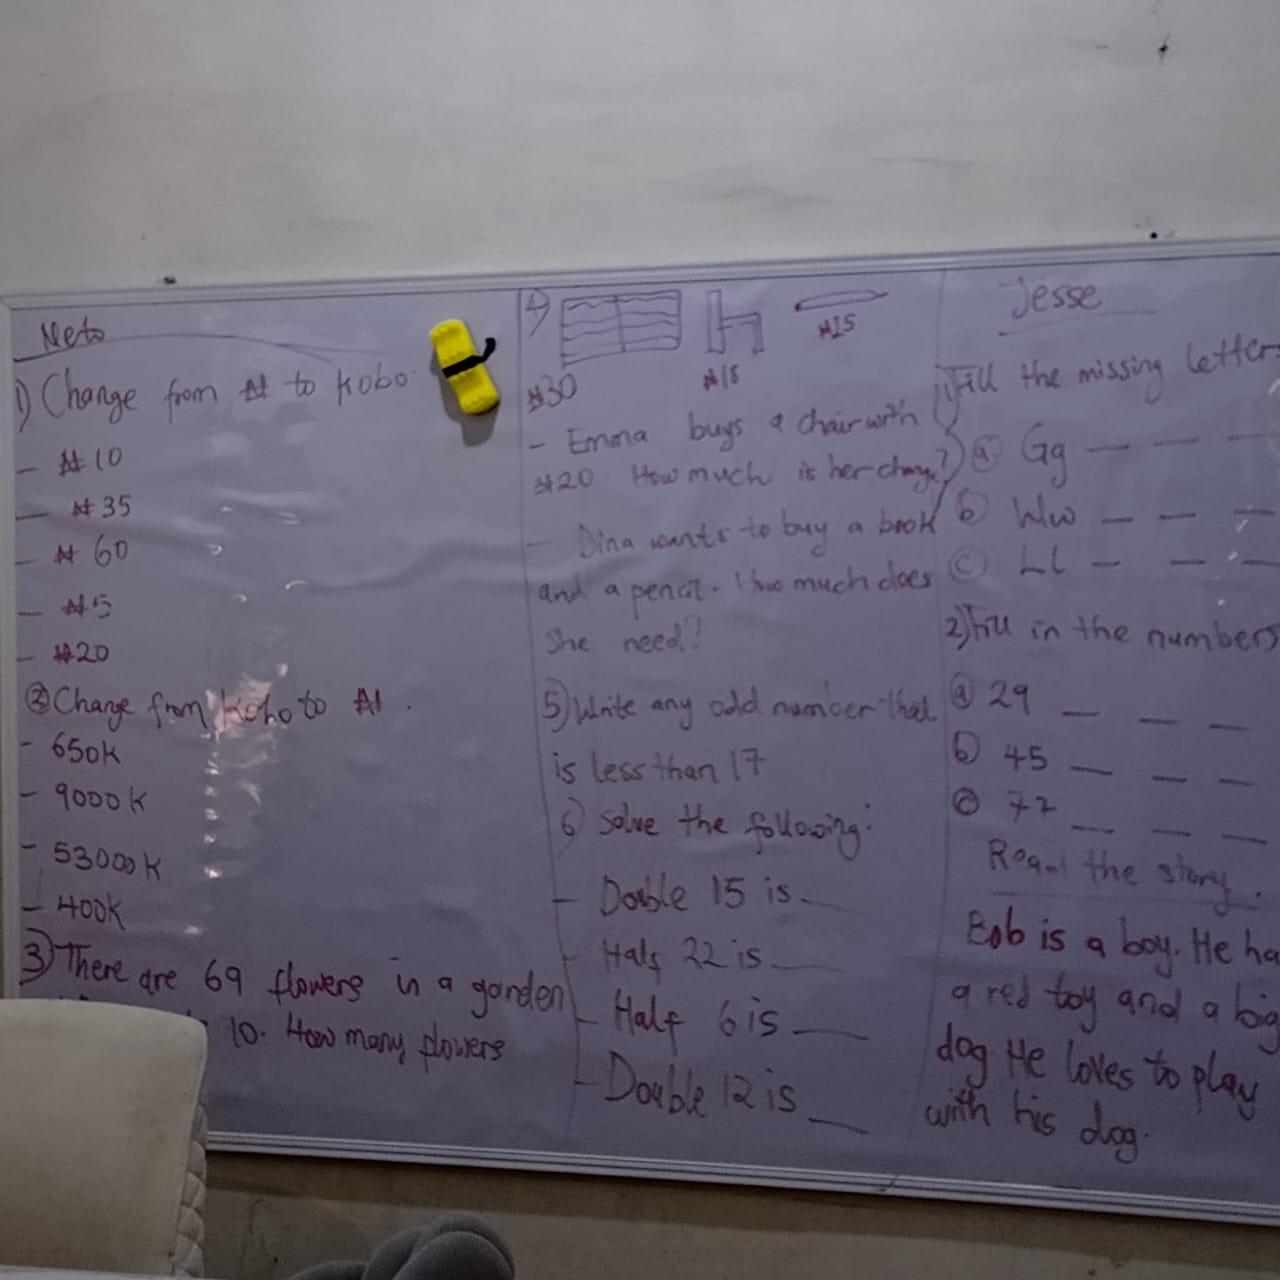 Neto
1) Change from ₦ to Kobo
- ₦10
- ₦35
- ₦60
- ₦5
- ₦20
② Change from Kobo to ₦.
- 650K
- 9000K
- 53000K
- 400K
3) There are 69 flowers in a garden
10. How many flowers
4)
₦30
₦15
- Emma buys a chair with
₦20. How much is her change?
- Dina wants to buy a book
and a pencil. How much does
She need?
5) Write any odd number that
is less than 17
6) Solve the following:
- Double 15 is __
- Half 22 is __
- Half 6 is __
- Double 12 is __
Jesse
1) Fill the missing letter
ⓐ Gg _ _ _
ⓑ Ww _ _ _
ⓒ Ll _ _ _
2) Fill in the numbers
ⓐ 29 _ _ _
ⓑ 45 _ _ _
ⓒ 77 _ _ _
Read the story.
Bob is a boy. He ha
a red toy and a big
dog. He loves to play
with his dog.